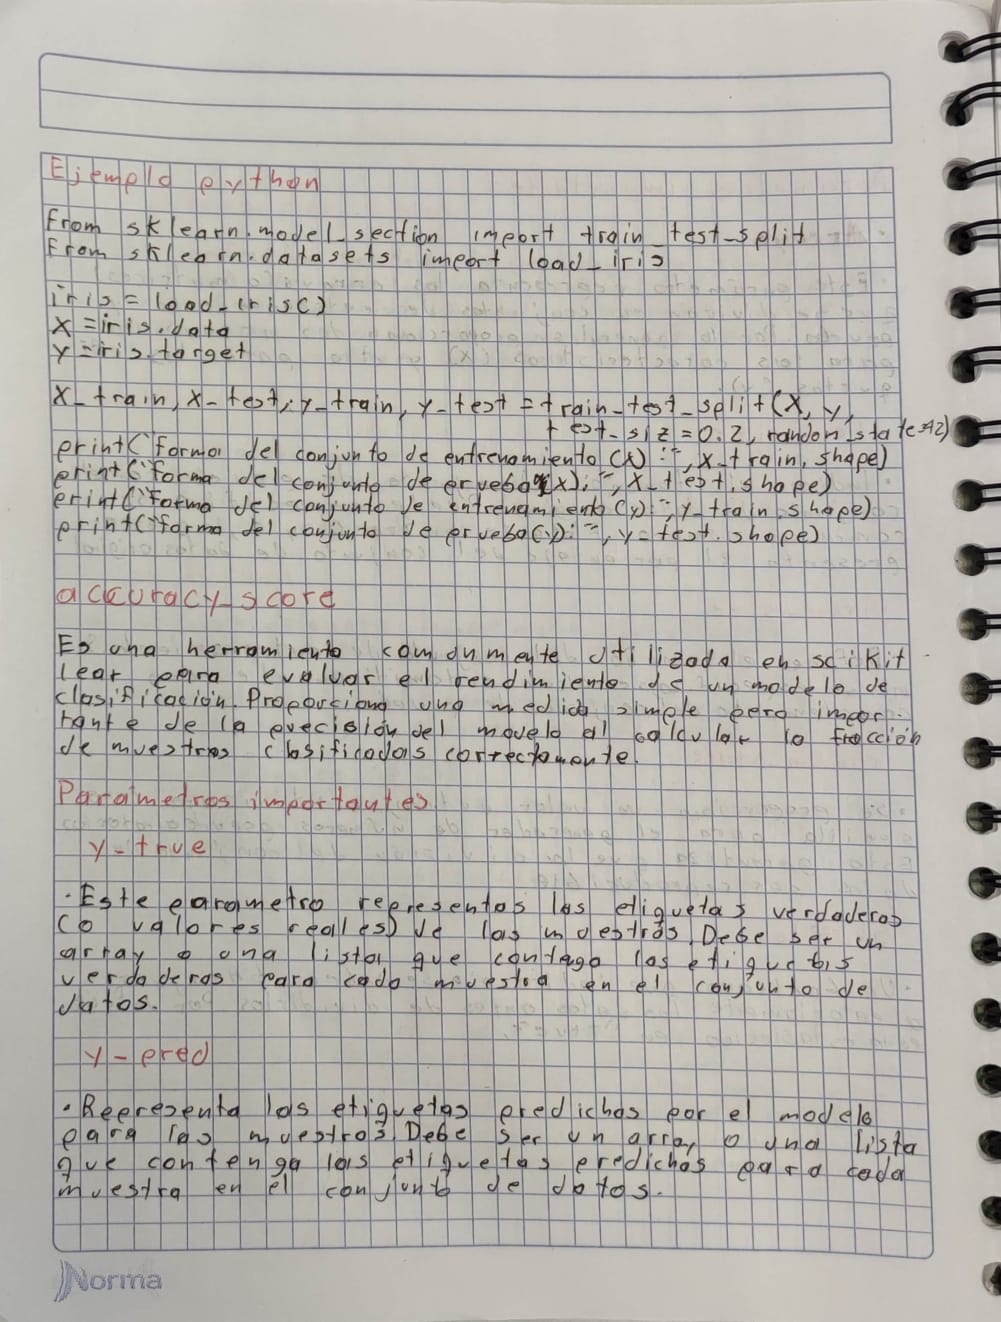 Ejemplo python
from sklearn.model_section import train_test_split
from sklearn.datasets import load_iris
iris = load_iris()
X = iris.data
y = iris.target
X_train, X_test, y_train, y_test = train_test_split(X, y,
test_siz = 0.2, random_state=42)
print("Forma del conjunto de entrenamiento (X):", X_train.shape)
print("forma del conjunto de prueba (X):", X_test.shape)
print("Forma del conjunto de entrenamiento (y):", y_train.shape)
print("forma del conjunto de prueba (y):", y_test.shape)
accuracy_score
Es una herramienta comunmente utilizada en scikit
lear para evaluar el rendimiento de un modelo de
clasificación. Proporciona una medida simple pero impor-
tante de la precisión del movelo al calcular la fracción
de muestras clasificadas correctamente.
Parámetros importantes
y-true
· Este parametro representas las etiquetas verdaderas
(o valores realles) de las muestras. Debe ser un
array o una lista que contaga las etiquetas
verdaderas para cada muestra en el conjunto de
datos.
y-pred
· Representa las etiquetas predichas por el modelo
para las muestras. Debe ser un array o una lista
que contenga las etiquetas predichas para cada
muestra en el conjunto de datos.
Norma